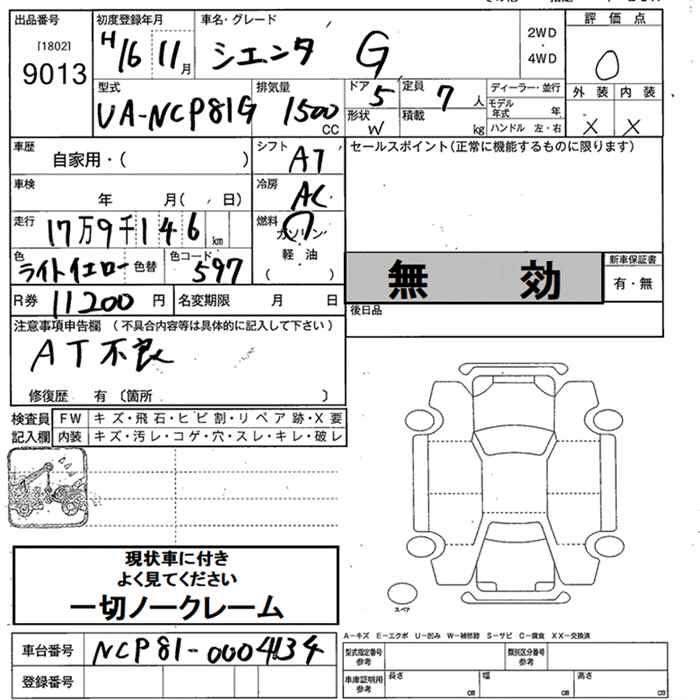 出品番号 初度登録年月 車名・グレード 評価点
[1802] H16 11月 シエンタ G 2WD 0
9013 4WD
外装 内装
型式 排気量 ドア 定員 ディーラー・並行
UA-NCP81G 1500 CC 5 7人 モデル年式 年 X X
形状 W 積載 kg ハンドル 左・右
車歴 シフト セールスポイント(正常に機能するものに限ります)
自家用・( ) AT
車検 冷房
年 月( 日) AC
走行 燃料
17万9千146 km ガソリン
色 色コード 軽油 新車保証書
ライトイエロー 色替 597 ( ) 無効 有・無
R券 11200 円 名変期限 月 日 後日品
注意事項申告欄 (不具合内容等は具体的に記入して下さい)
AT不良
修復歴 有 〔箇所 〕
検査員 FW キズ・飛石・ヒビ割・リペア跡・X要
記入欄 内装 キズ・汚レ・コゲ・穴・スレ・キレ・破レ
現状車に付き
よく見てください
一切ノークレーム
スペア
A-キズ E-エクボ U-凹み W-補修跡 S-サビ C-腐食 XX-交換済
車台番号 NCP81-0004134 型式指定番号 参考 類別区分番号 参考
登録番号 車庫証明用 参考 長さ cm 幅 cm 高さ cm